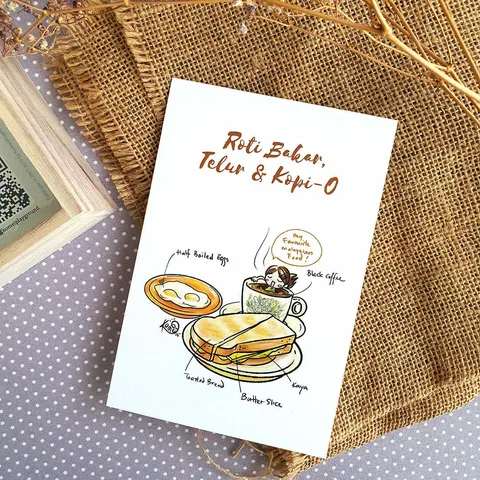 Roti Bakar,
Telur & Kopi-O
My
Favourite
Malaysian
Food!
Half Boiled Eggs
Black Coffee
Toasted Bread
Butter Slice
Kaya
homeplayground